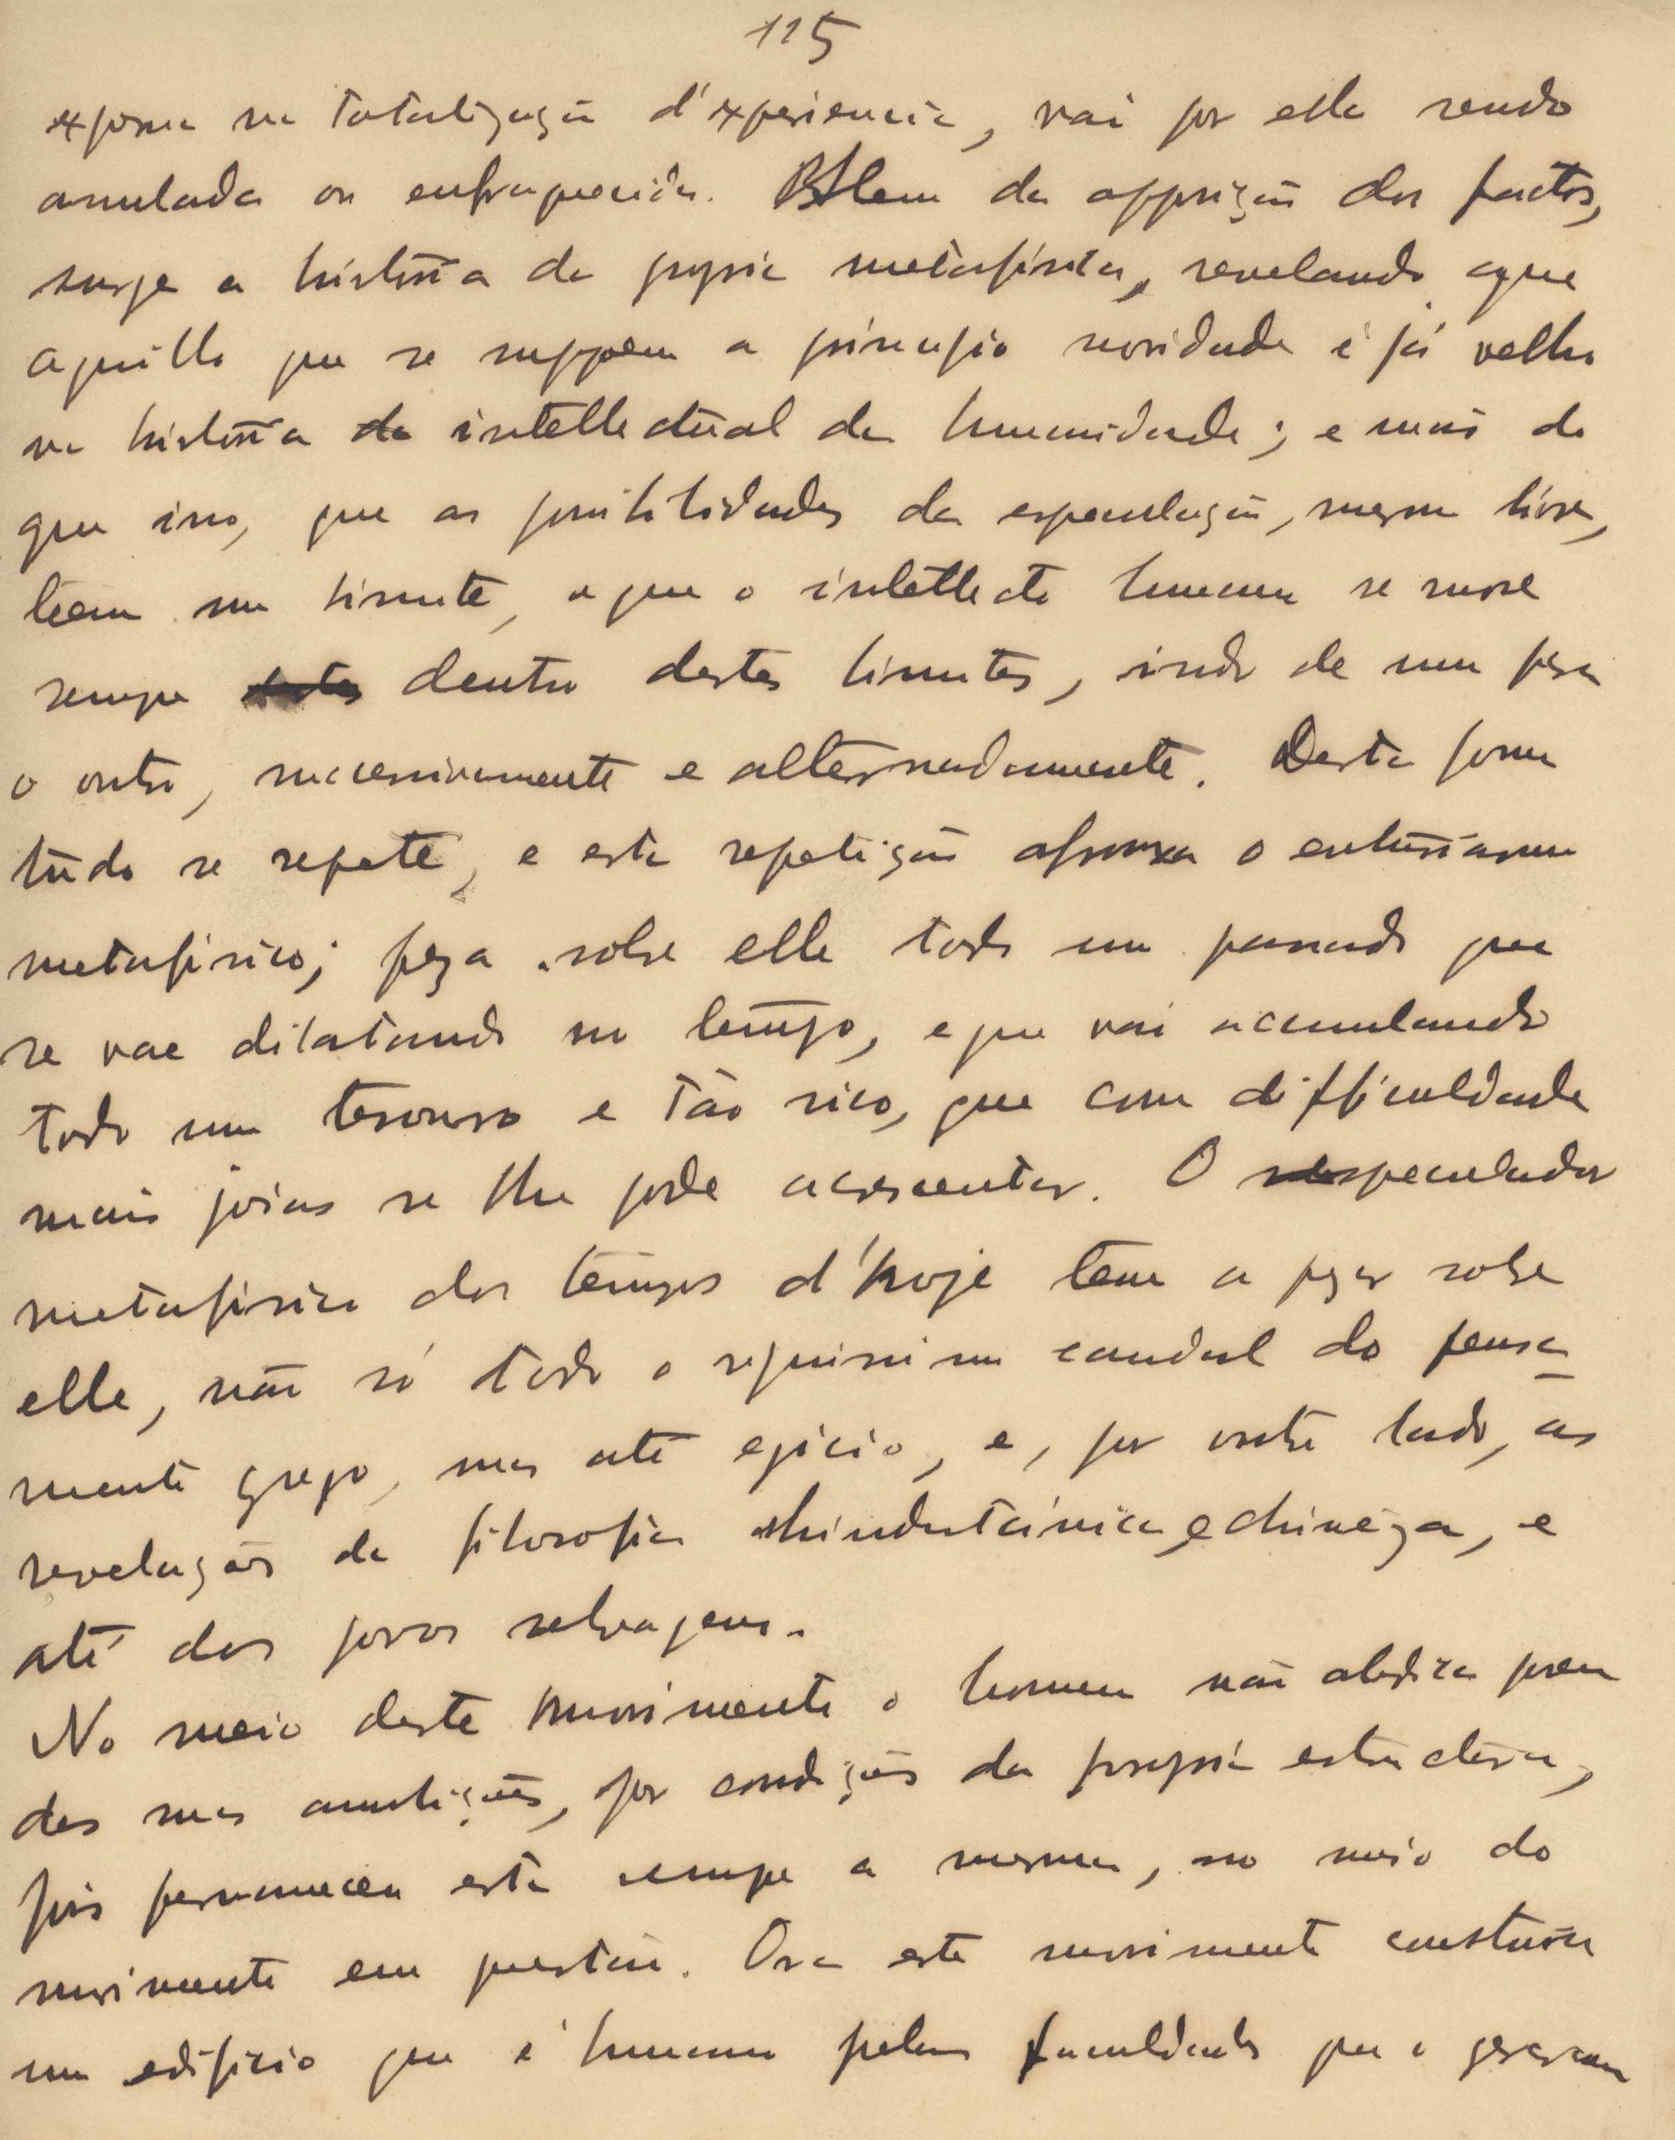 115
expõem na totalização d'experiencia, vai por ella sendo
anulada ou enfraquecida. Alem da opposição dos factos,
surge a historia da propria metafisica, revelando que
aquillo que se suppõem a principio novidade é já velho
na historia da intellectual da humanidade; e mais do
que isso, que as possibilidades da especulação, mesmo livre,
teem um limite, e que o intellecto humano se move
sempre dentro destes limites, indo de um para
o outro, sucessivamente e alternadamente. Desta forma
tudo se repete, e esta repetição afrouxa o entusiasmo
metafisico; peza sobre elle todo um passado que
se vae dilatando no tempo, e que vai acumulando
todo um tesouro e tão rico, que com difficuldade
mais joias se lhe pode acrescentar. O especulador
metafisico dos tempos d'hoje tem a pezar sobre
elle, não só todo o riquissimo caudal do pensa-
mento grego, mas até egicio, e, por outro lado, as
revelações da filosofia hindustánica e chineza, e
até dos povos selvagens.
No meio deste movimento o homem não abdica porem
das suas ambições, por condições da propria estructura,
pois permaneceu esta sempre a mesma, no meio do
movimento em questão. Ora este movimento construiu
um edificio que é humano pelas faculdades que o geraram